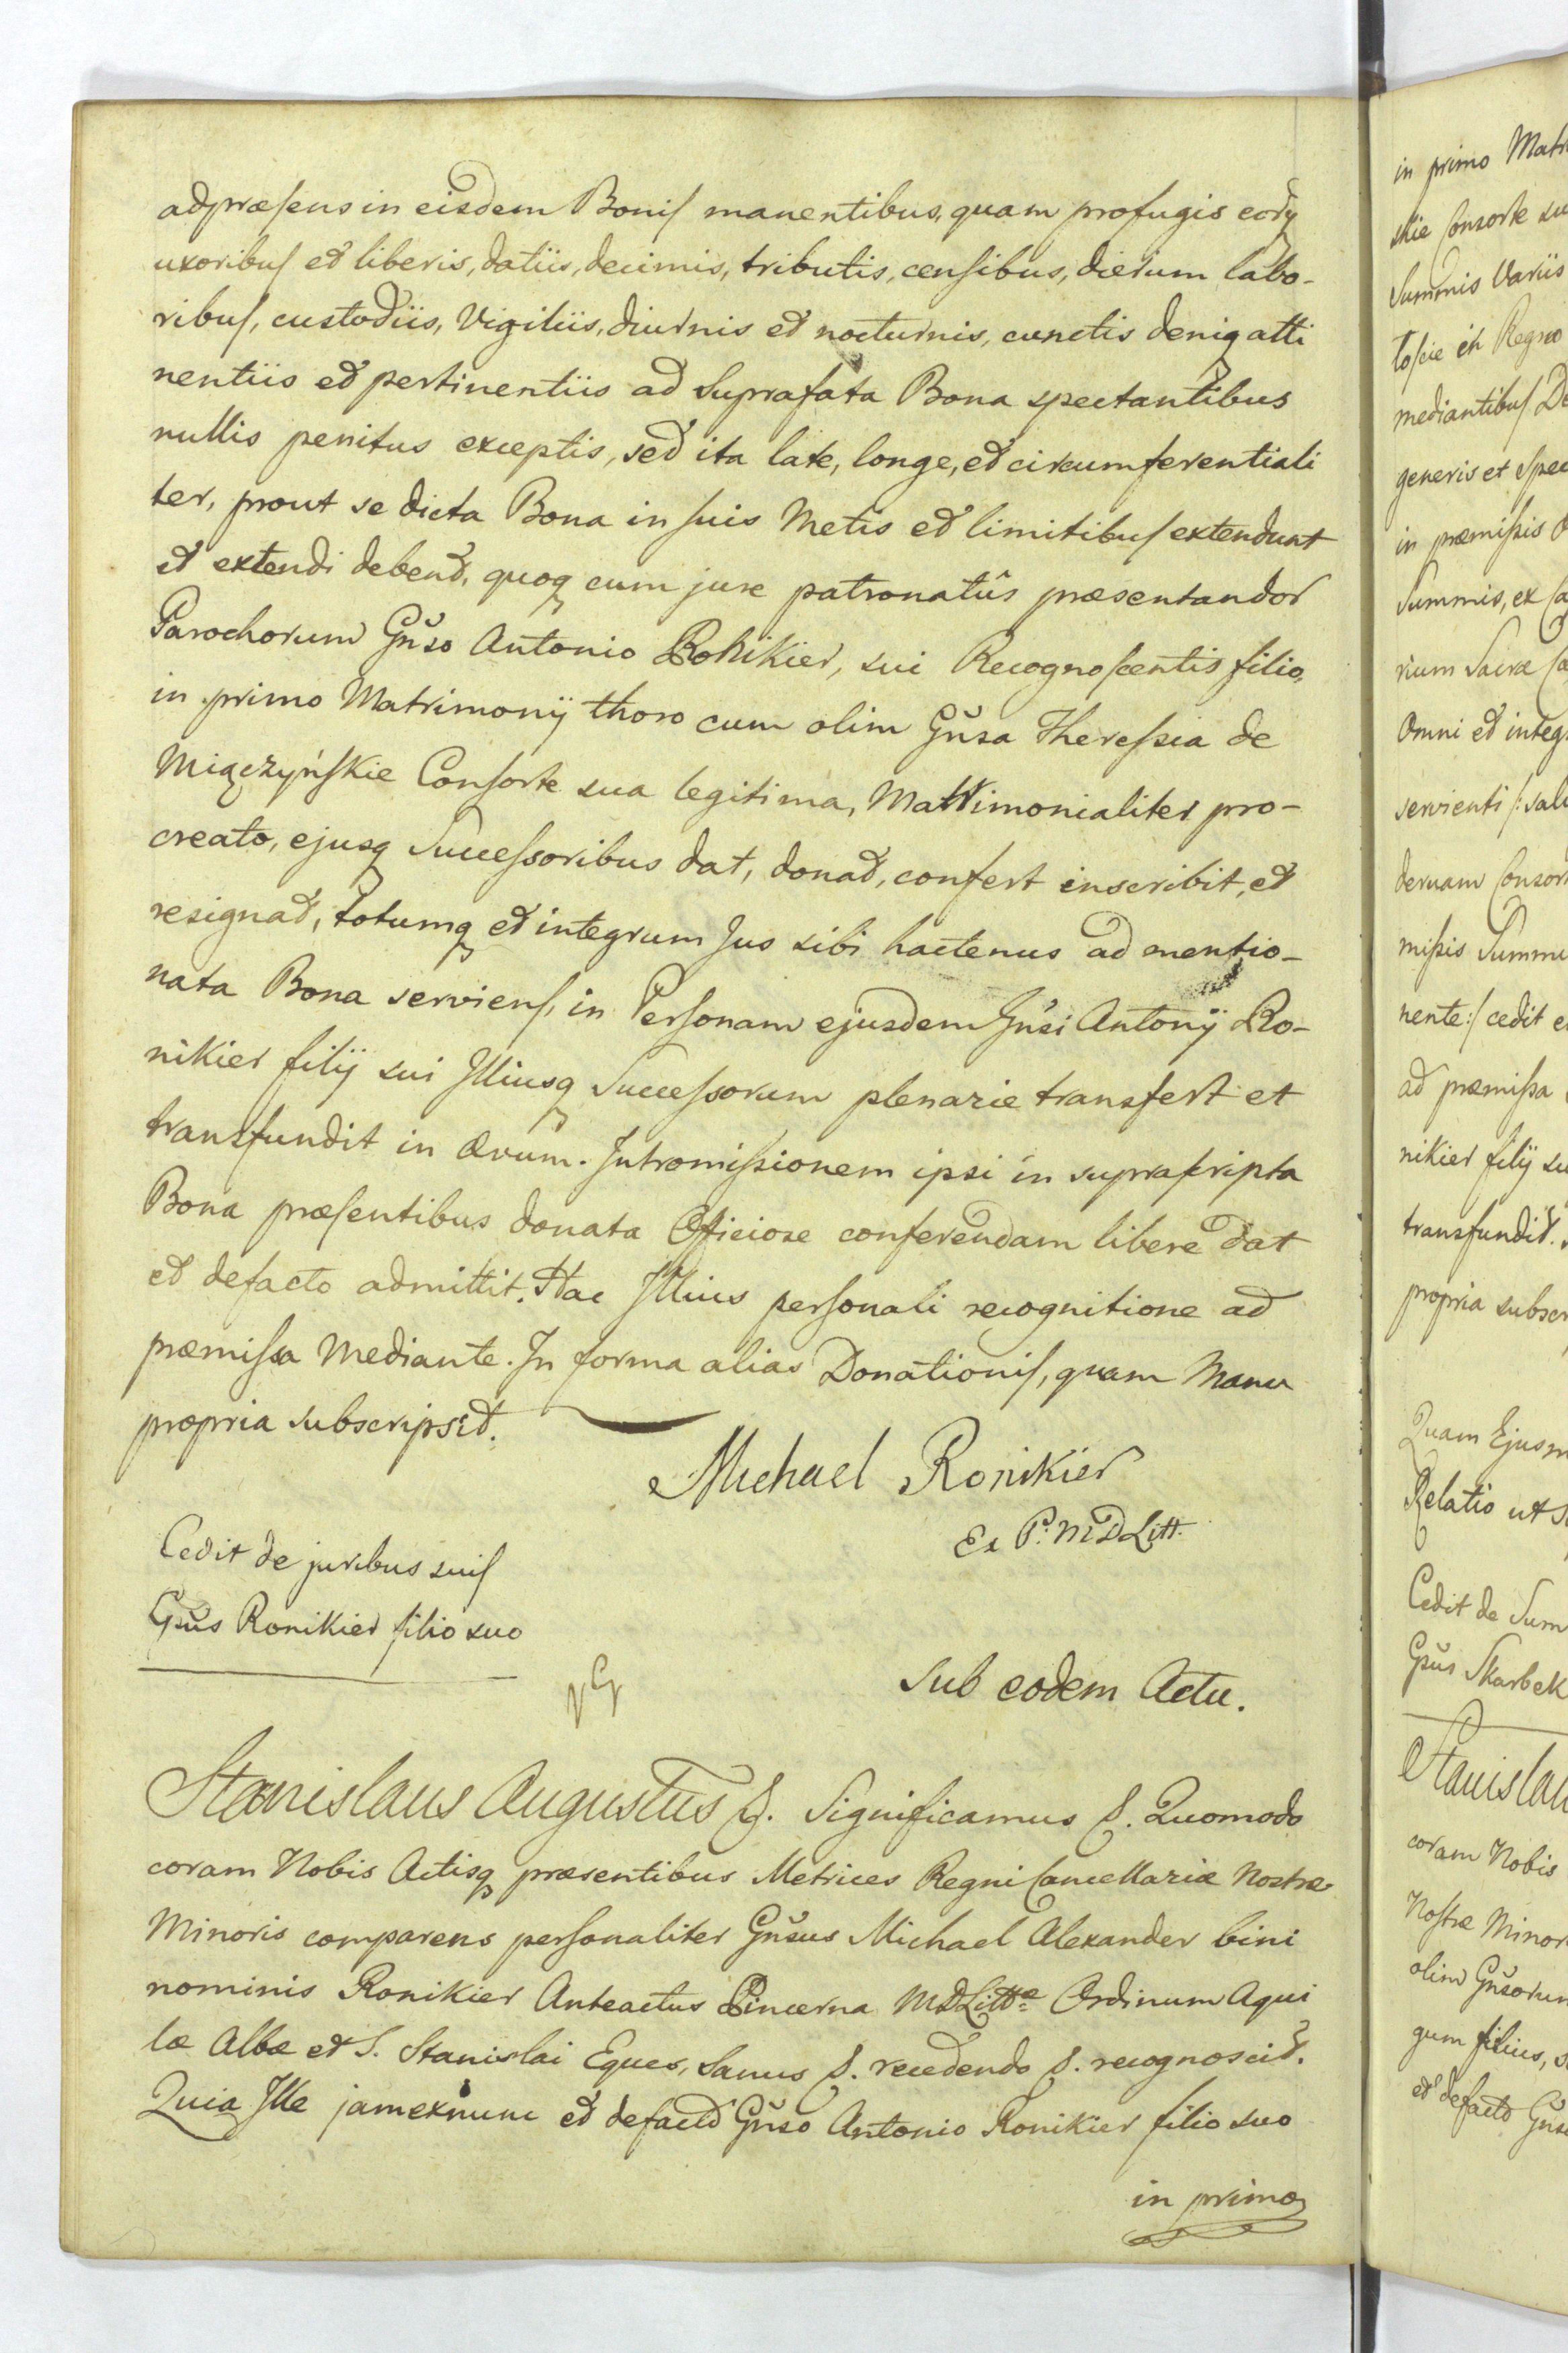 adpræsens in eisdem Bonis manentibus, quam profugis eorq
uxoribus et liberis, datiis, decimis, tributis, censibus, dierum labo-
ribus, custodiis, Vigiliis, diurnis et nocturnis, cunctis deniq atti
nentiis et pertinentiis ad Suprafata Bona spectantibus
nullis penitus exceptis, sed ita late, longe, et circumferentiali
ter, prout se dicta Bona in suis Metis et limitibus extendunt
et extendi debent, quoq cum jure patronatûs præsentandor
Parochorum Gñso Antonio Ronikier, sui Recognoscentis filio,
in primo Matrimonij thoro cum olim Gñsa Theressia de
Miączyńskie Consorte sua legitima, Matrimonialiter pro-
creato, ejusq Successoribus dat, donat, confert inscribit, et
resignat, totumq et integrum Jus sibi hactenus ad mentio-
nata Bona serviens, in Personam ejusdem Gñsi Antonij Ro-
nikier filij sui Illiusq Successorum plenarie transfert et
transfundit in ævum. Intromissionem ipsi in suprascripta
Bona præsentibus donata Officiose conferendam libere dat
et defacto admittit. Hac Illius personali recognitione ad
præmissa Mediante. In forma alias Donationis, quam Manu
propria subscripsit.
Michael Ronikier
Ex P. MDLitt.
Cedit de juribus suis
Gñus Ronikier filio suo
Sub eodem Actu.
Stanislaus Augustus &. Significamus &. Quomodo
coram Nobis Actisq præsentibus Metrices Regni Cancellariæ Nostræ
Minoris comparens personaliter Gñsus Michael Alexander bini
nominis Ronikier Anteactus Pincerna MDLittæ Ordinum Aqui
læ Albæ et S. Stanislai Eques, Sanus &. recedendo &. recognoscit.
Quia Ille jamexnunc et defacto Gñso Antonio Ronikier filio suo
in primo
in primo Matr
skie Consorte su
Summis Variis
toscie in Regno
mediantibus De
generis et Spec
in præmissis
Summis, ex
rium Sacræ
Omni et integ
servienti /: sal
dervam Consor
missis Summ
nente :/ cedit e
ad præmissa
nikier filij su
transfundit.
propria subscr
Quam Ejusm
Relatio ut
Cedit de Sum
Gñus Skarbek
Stanislau
coram Nobis
Nostræ Minor
olim Gñsorum
gum filius,
et defacto Gñs